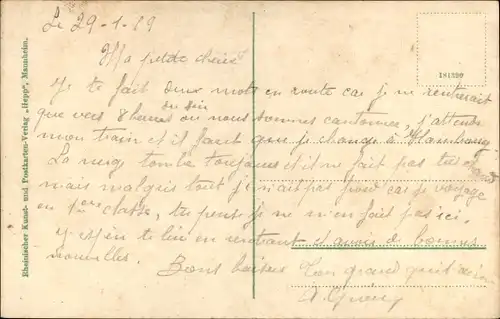 Le 29-1-19
Ma petite chérie
Je te fait deux mots en route car je ne rentrerait
que vers 8 heures du soir où nous sommes cantonnés, j'attends
mon train et il faut que je change à
La neige tombe toujours et il ne fait pas chaud
mais malgré tout je n'ait pas froid car je voyage
en 1ere classe, tu peut je ne m'en fait pas ici.
J'espère te lire en rentrant et avoir de bonnes
nouvelles. Bons baisers Ton grand
A.
181390
Rheinischer Kunst- und Postkarten-Verlag „Hepp", Mannheim.